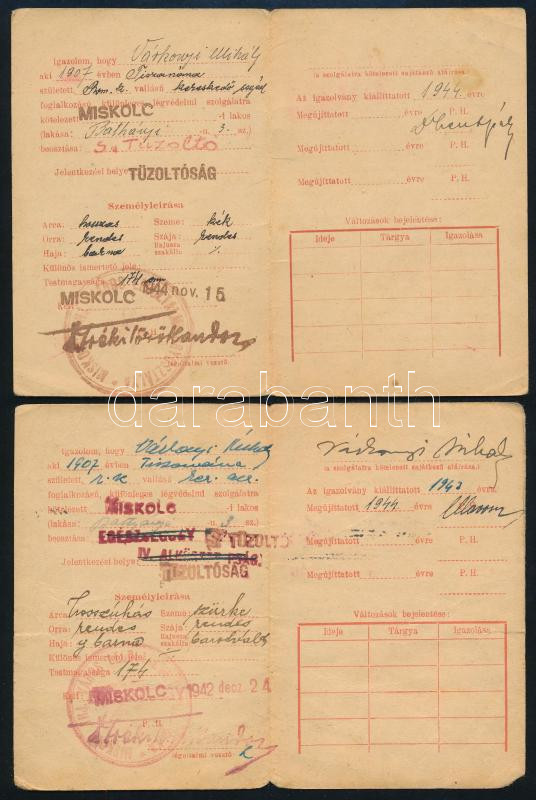 Igazolom, hogy Várkonyi Mihály
aki 1907 évben Tiszanána
született, Rom. k. vallású kereskedő segéd
foglalkozású, különleges légvédelmi szolgálatra
kötelezett MISKOLC -i lakos
(lakása: Batthányi u. 3. sz.)
beosztása: S. Tüzoltó
Jelentkezési helye: TÜZOLTÓSÁG
Személyleírása
Arca: hosszas Szeme: kék
Orra: rendes Szája: rendes
Haja: barna Bajusza szakálla: /.
Különös ismertető jele:
Testmagassága: 174 cm
MISKOLC 1944 nov. 15
Kelt
légoltalmi vezető
(a szolgálatra kötelezett sajátkezű aláírása.)
Az igazolvány kiállíttatott 1944. évre
Megújíttatott évre P. H.
Megújíttatott évre P. H.
Megújíttatott évre P. H.
Változások bejelentése:
Ideje Tárgya Igazolása
darabanth
Igazolom, hogy Várkonyi Mihály
aki 1907 évben Tiszanána
született, r. k. vallású ker. alk.
foglalkozású, különleges légvédelmi szolgálatra
kötelezett MISKOLC
(lakása: Batthányi u. 3. sz.)
beosztása: EGÉSZSÉGÜGY S. TÜZOLTÓ
IV.
Jelentkezési helye: TÜZOLTÓSÁG
Személyleírása
Arca: hosszúkás Szeme: szürke
Orra: rendes Szája: rendes
Haja: barna Bajusza szakálla: borotvált
Különös ismertető jele:
Testmagassága: 174
Kelt MISKOLC 1942 decz. 24
P. H.
légoltalmi vezető
Várkonyi Mihály
(a szolgálatra kötelezett sajátkezű aláírása.)
Az igazolvány kiállíttatott 1943 évre
Megújíttatott 1944 évre
P. H.
Megújíttatott P. H.
Megújíttatott évre P. H.
Változások bejelentése:
Ideje Tárgya Igazolása